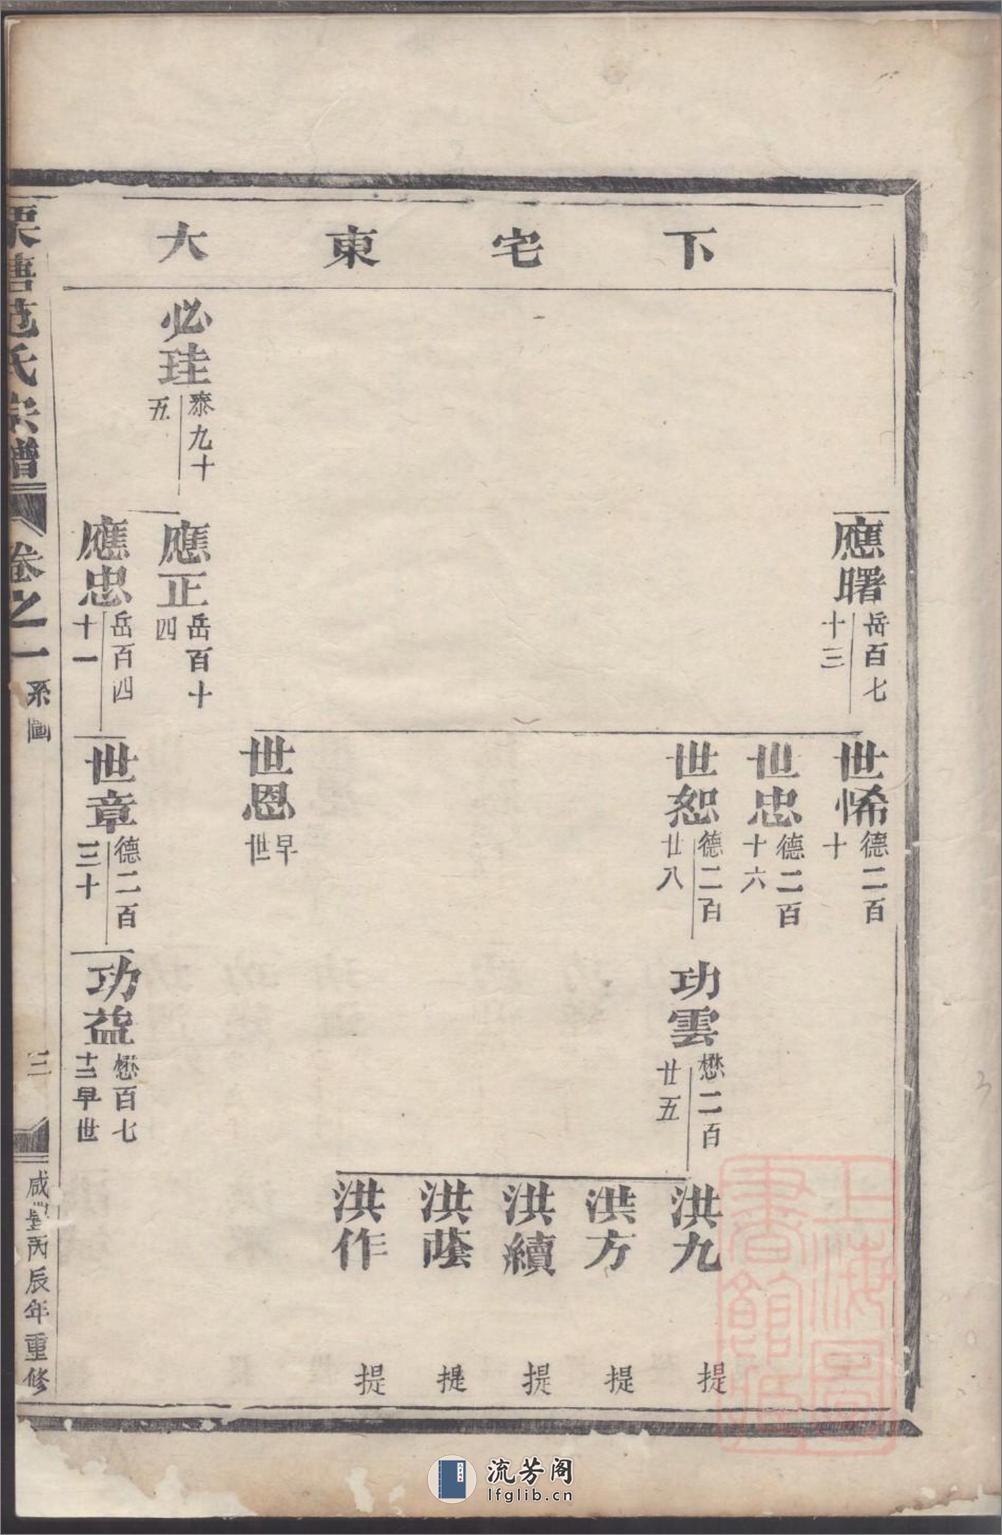 下宅東大
應曙 岳百七十三
世悕 德二百十
世忠 德二百十六
世恕 德二百廿八
功雲 懋二百廿五
洪九 提
洪方 提
洪續 提
洪蔭 提
洪作 提
世恩 早世
必珪 泰九十五
應正 岳百十四
應忠 岳百四十一
世章 德二百三十
功益 懋百七十二早世
栗塘范氏宗譜 卷之一 系圖 三 咸豐丙辰年重修
上海圖書館藏
流芳阁
lfglib.cn